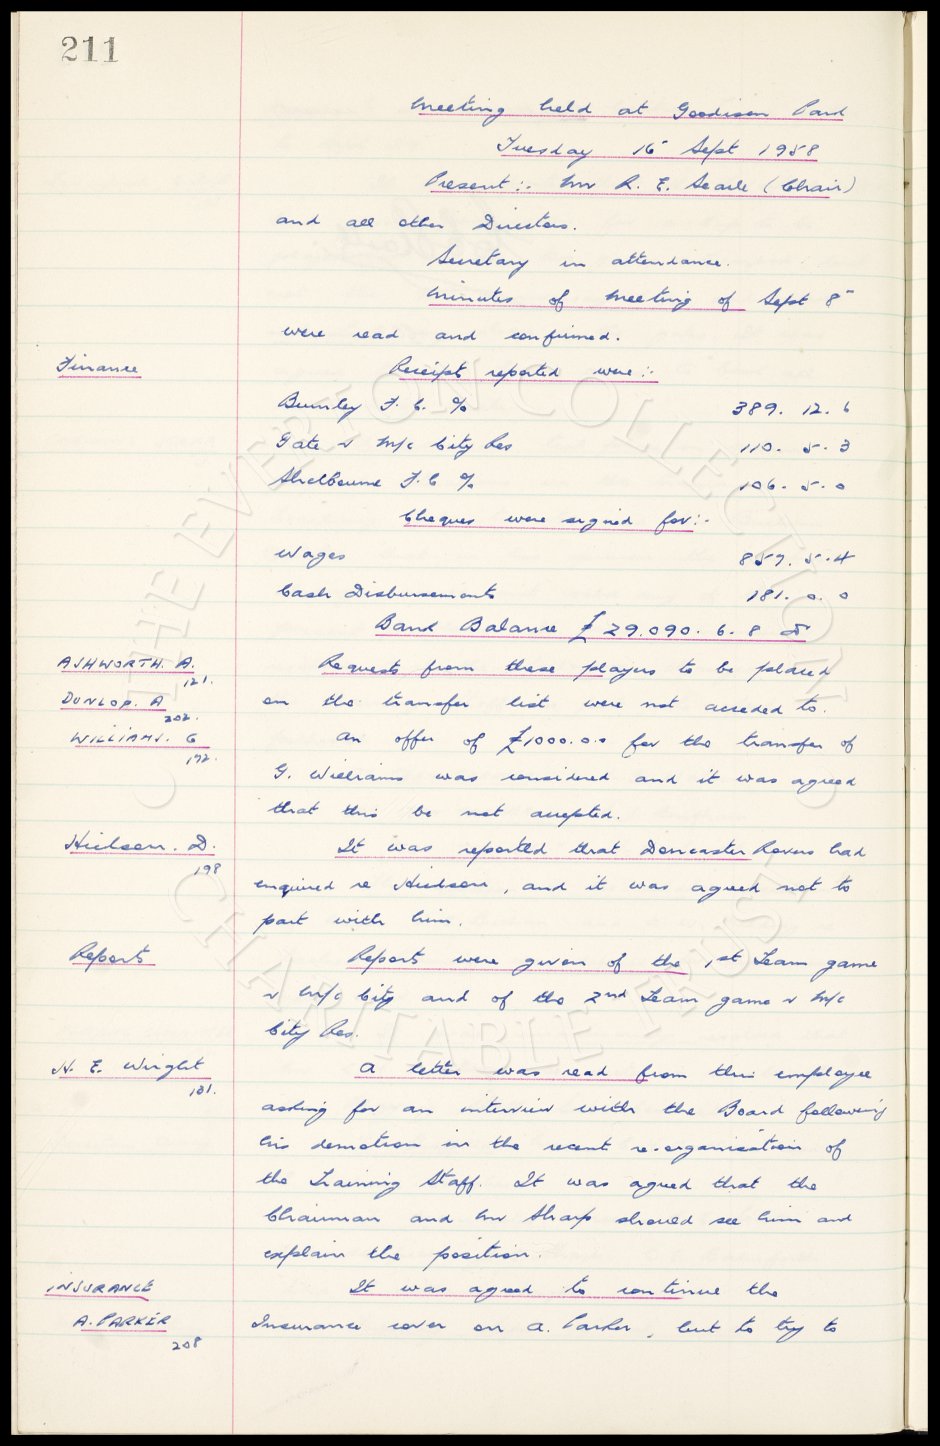 211
Meeting held at Goodison Park
Tuesday 16th Sept 1958
Present:- Mr R. E. Searle (Chair)
and all other Directors.
Secretary in attendance.
Minutes of Meeting of Sept 8th
were read and confirmed.
Finance
Receipts reported were:-
Burnley F. C. % 389. 12. 6
Gate v M/c City Res 110. 5. 3
Shelbourne F. C % 106. 5. 0
Cheques were signed for:-
Wages 857. 5. 4
Cash Disbursements 181. 0. 0
Bank Balance £29.090. 6. 8
ASHWORTH. A. 121.
DUNLOP. A 202.
WILLIAMS. G 192.
Requests from these players to be placed
on the transfer list were not acceded to.
An offer of £1000.0.0 for the transfer of
G. Williams was considered and it was agreed
that this be not accepted.
Hickson. D. 198
It was reported that Doncaster Rovers had
enquired re Hickson, and it was agreed not to
part with him.
Reports
Reports were given of the 1st Team game
v M/c City and of the 2nd Team game v M/c
City Res.
H. E. Wright 181.
A letter was read from this employee
asking for an interview with the Board following
his demotion in the recent re-organisation of
the Training Staff. It was agreed that the
Chairman and Mr Sharp should see him and
explain the position.
INSURANCE
A. PARKER 208
It was agreed to continue the
Insurance cover on A. Parker, but to try to
THE EVERTON COLLECTION
CHARITABLE TRUST